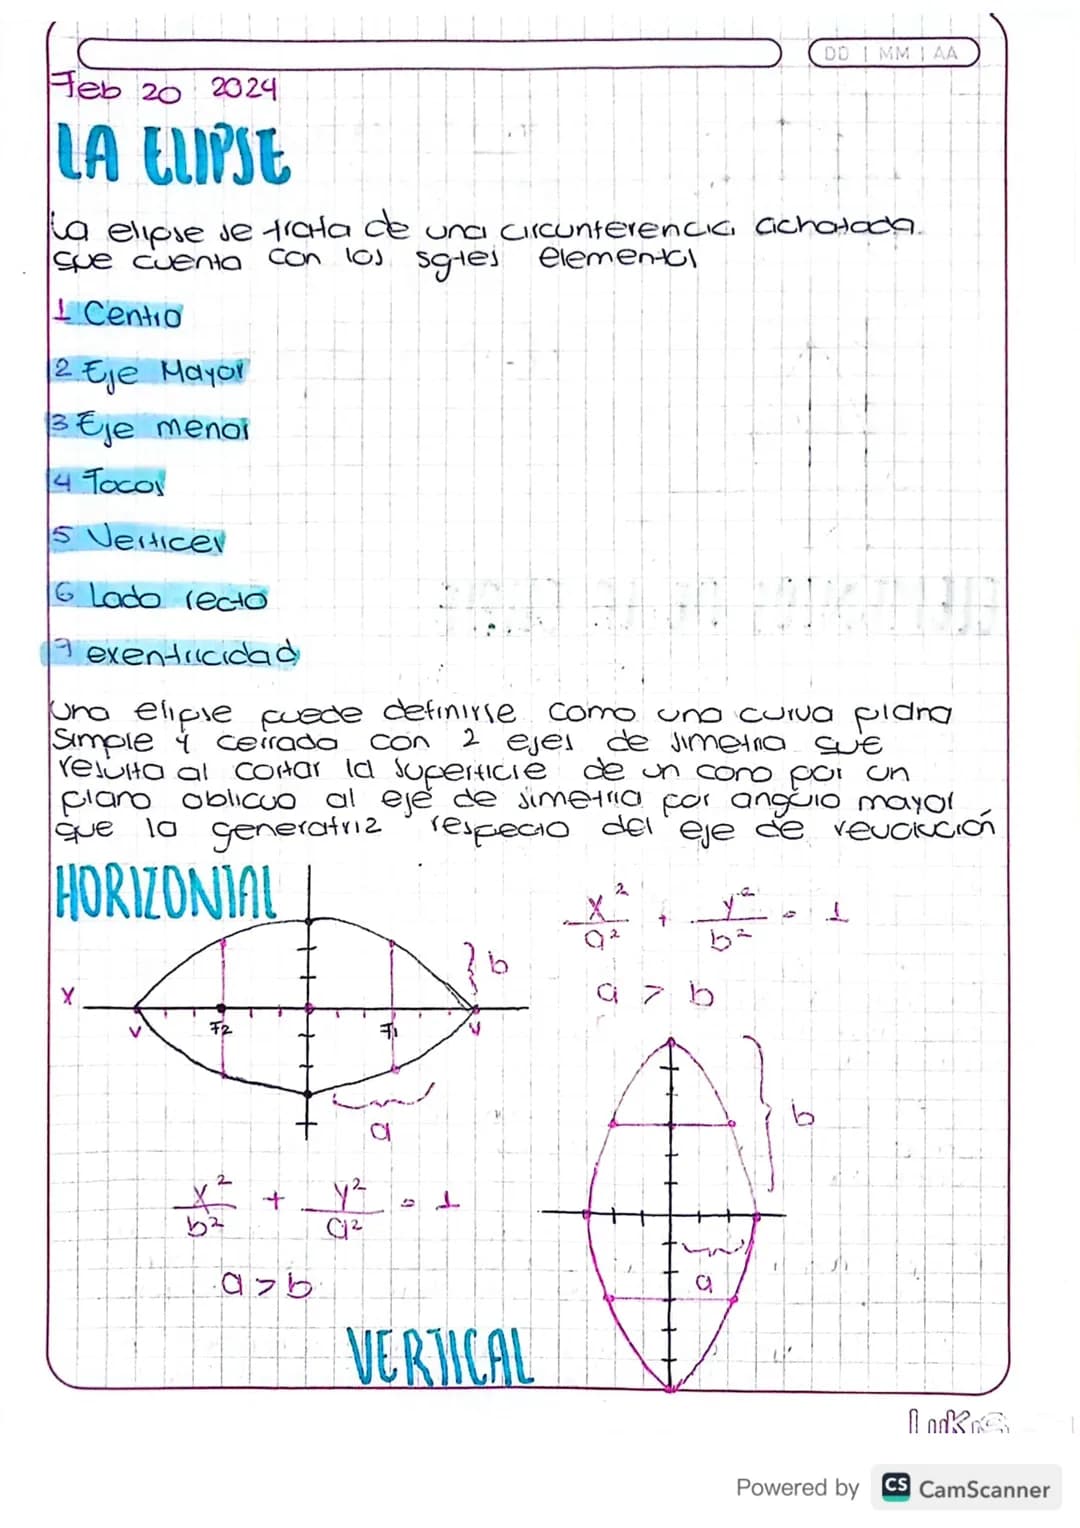 DD | MM | AA
Feb 20 2024
LA ELIPSE
La elipse se trata de una circunferencia achatada.
que cuenta con los sgtes elementos
1 Centro
2 Eje Mayor
3 Eje menor
4 Focos
5 Vertices
6 Lado recto
7 exentricidad
Una elipse puede definirse como una curva plana
simple y cerrada con 2 ejes de simetria que
resulta al cortar la superficie de un cono por un
plano oblicuo al eje de simetria por angulo mayor
que la generatriz respecto del eje de revolución
HORIZONTAL
x²/a² + y²/b² = 1
a > b
b
X
V F2 F1 V
a
b
x²/b² + y²/a² = 1
a
a > b
VERTICAL
Lukas
Powered by CS CamScanner